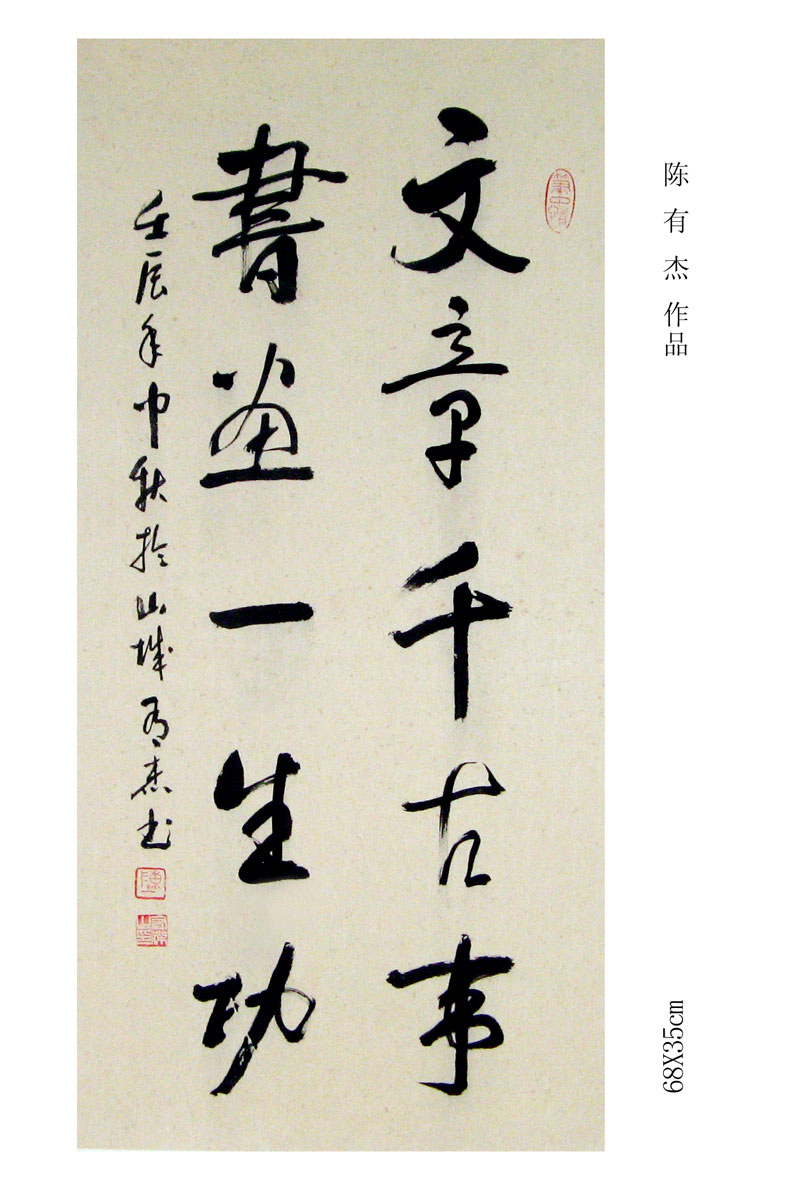 文章千古事
書畫一生功
壬辰年中秋於山城有杰书
陈有杰作品
68X35cm